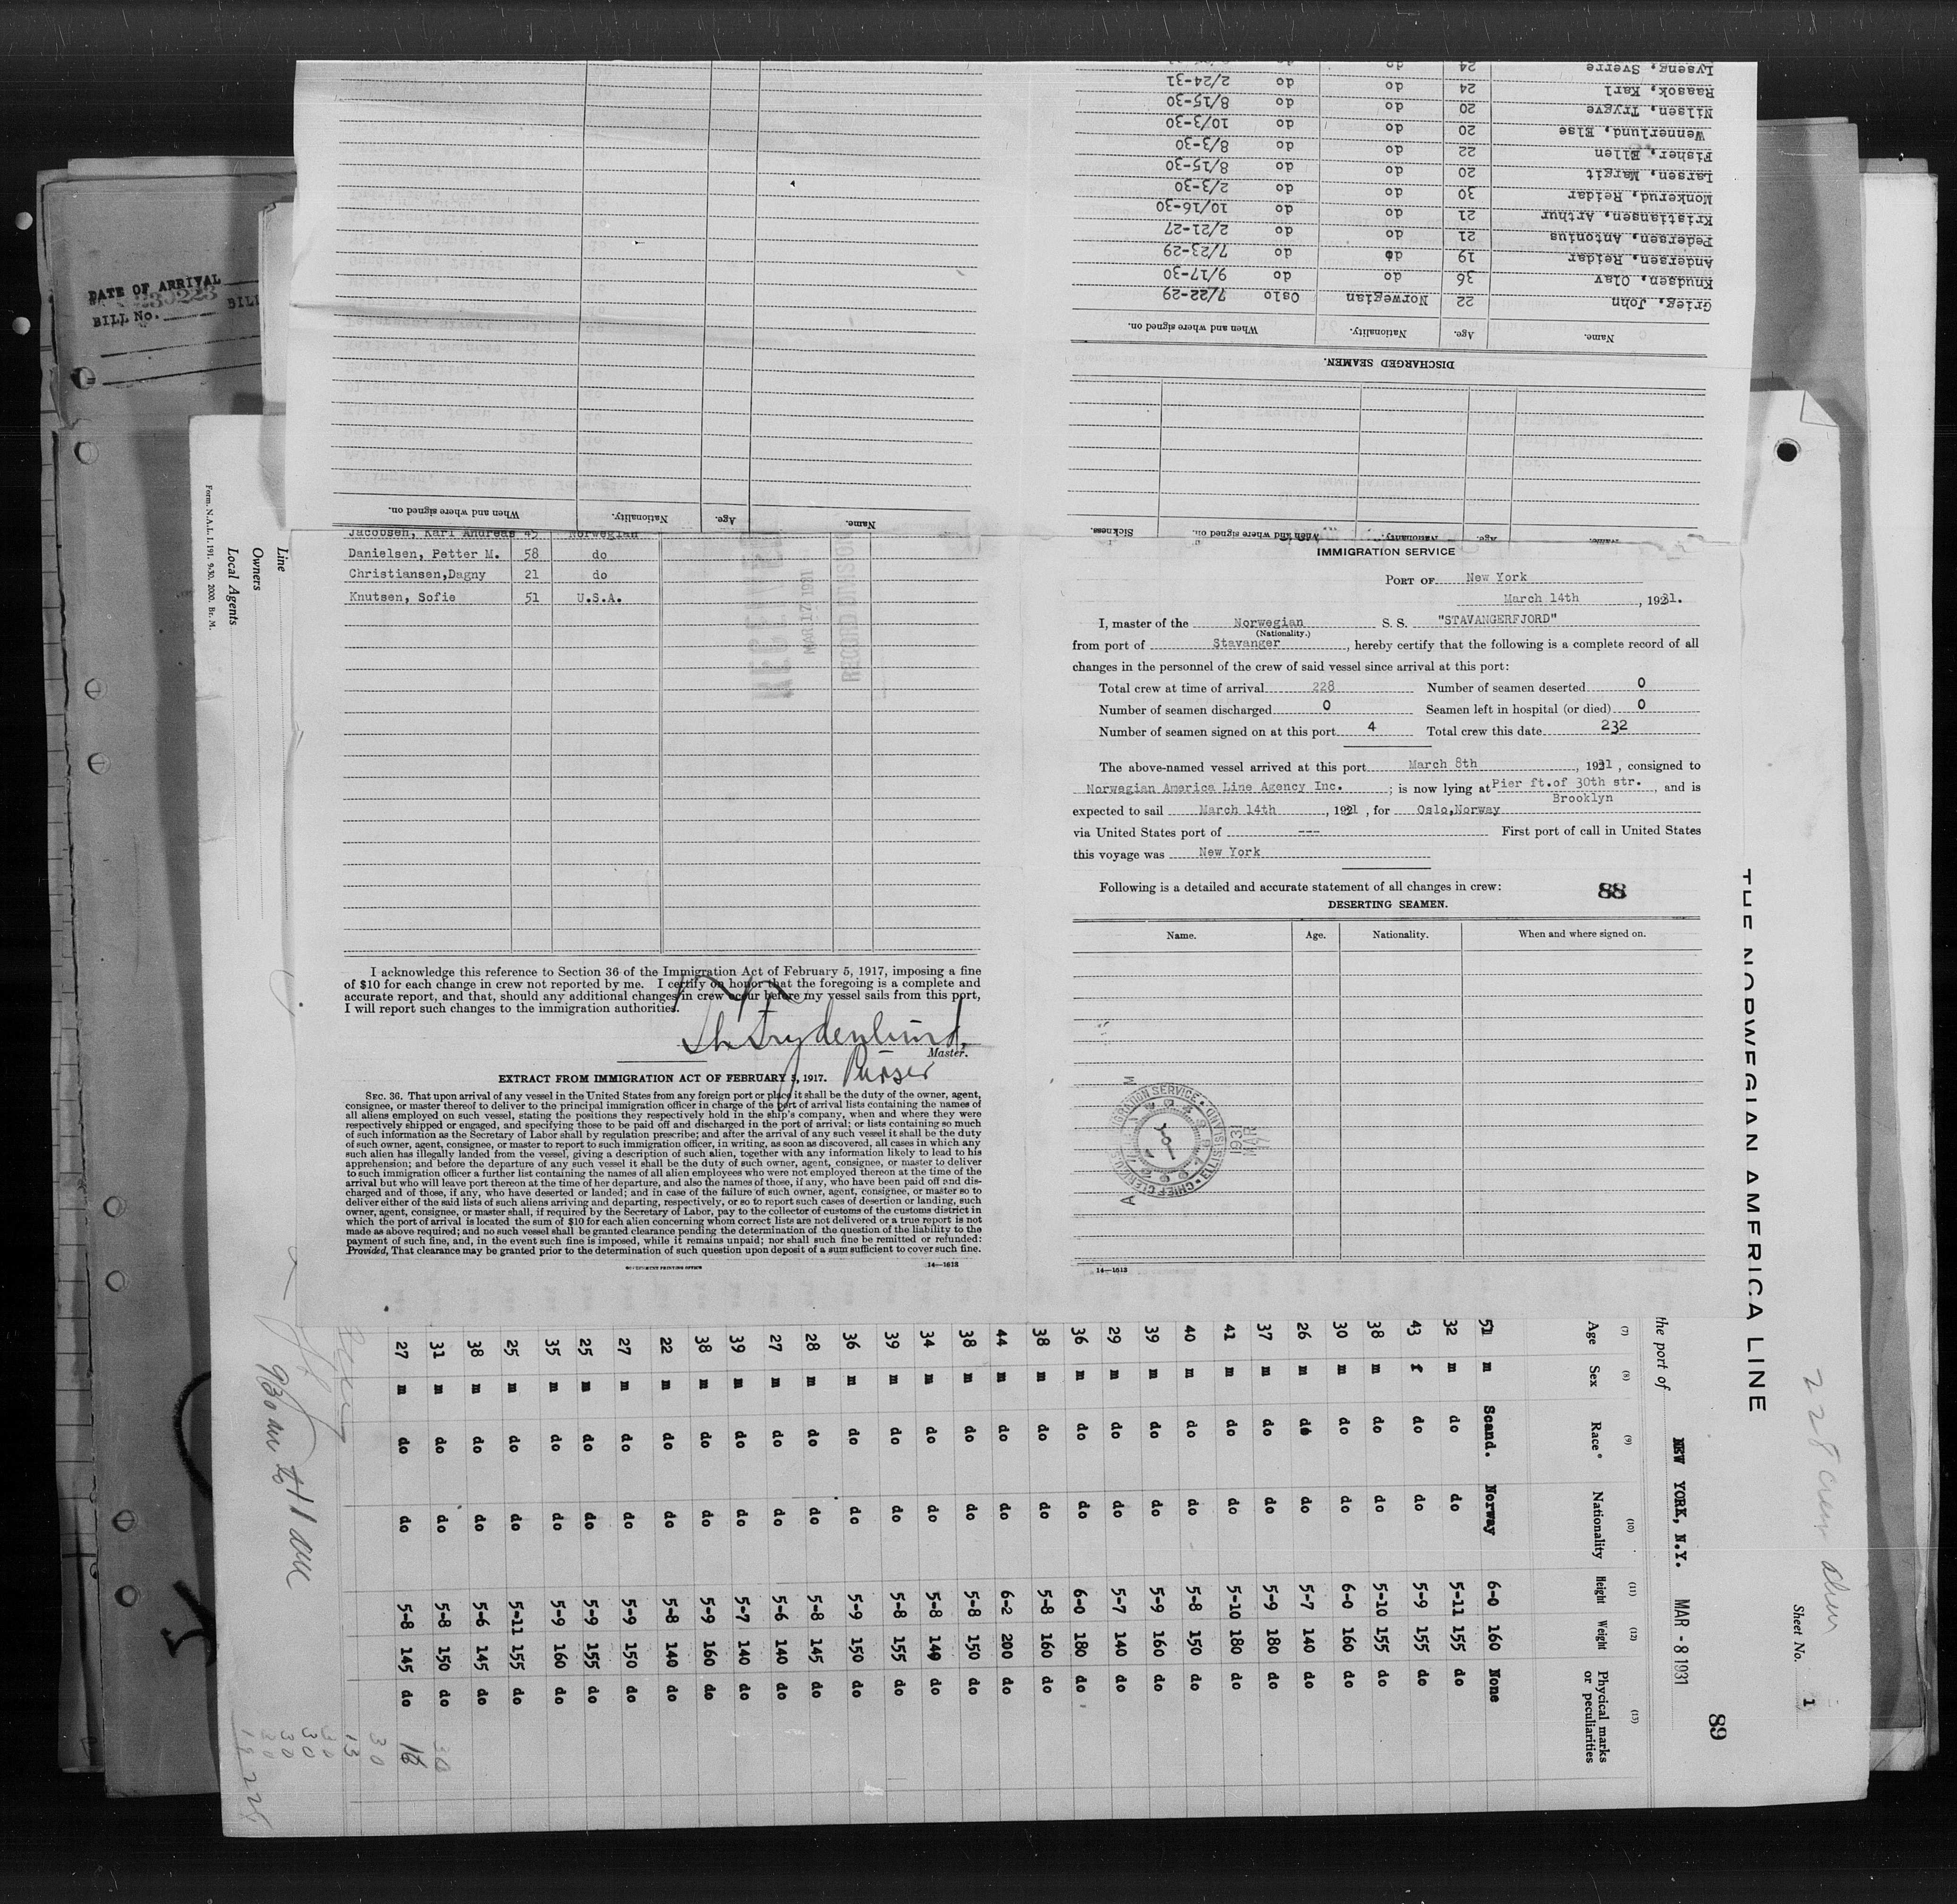 DATE OF ARRIVAL
BILL No.
Form. N.A.L. 1.191. 9-30. 2000. Br. M.
Local Agents
Owners
Line
Lyseng, Sverre 24 do
Raasok, Karl 24 do do 2/24-31
Nilsen, Trygve 20 do do 8/15-30
Wennerlund, Else 20 do do 10/3-30
Fisher, Ellen 22 do do 8/3-30
Larsen, Margit 20 do do 8/15-30
Monkerud, Reidar 30 do do 2/3-30
Kristiansen, Arthur 21 do do 10/16-30
Pedersen, Antonius 21 do do 2/21-27
Andersen, Reidar 19 do do 7/23-29
Knudsen, Olav 36 do do 9/17-30
Grieg, John 22 Norwegian Oslo 7/22-29
Name. Age. Nationality. When and where signed on.
DISCHARGED SEAMEN.
Name. Age. Nationality. When and where signed on. Sickness.
Name. Age. Nationality. When and where signed on.
Jacobsen, Karl Andreas 45 Norwegian
Danielsen, Petter M. 58 do
Christiansen,Dagny 21 do
Knutsen, Sofie 51 U.S.A.
RECEIVED
MAR 17 1931
RECORD DIVISION
I acknowledge this reference to Section 36 of the Immigration Act of February 5, 1917, imposing a fine
of $10 for each change in crew not reported by me. I certify on honor that the foregoing is a complete and
accurate report, and that, should any additional changes in crew occur before my vessel sails from this port,
I will report such changes to the immigration authorities.
Frydenlund,
Master.
Purser
EXTRACT FROM IMMIGRATION ACT OF FEBRUARY 5, 1917.
SEC. 36. That upon arrival of any vessel in the United States from any foreign port or place it shall be the duty of the owner, agent,
consignee, or master thereof to deliver to the principal immigration officer in charge of the port of arrival lists containing the names of
all aliens employed on such vessel, stating the positions they respectively hold in the ship's company, when and where they were
respectively shipped or engaged, and specifying those to be paid off and discharged in the port of arrival; or lists containing so much
of such information as the Secretary of Labor shall by regulation prescribe; and after the arrival of any such vessel it shall be the duty
of such owner, agent, consignee, or master to report to such immigration officer, in writing, as soon as discovered, all cases in which any
such alien has illegally landed from the vessel, giving a description of such alien, together with any information likely to lead to his
apprehension; and before the departure of any such vessel it shall be the duty of such owner, agent, consignee, or master to deliver
to such immigration officer a further list containing the names of all alien employees who were not employed thereon at the time of the
arrival but who will leave port thereon at the time of her departure, and also the names of those, if any, who have been paid off and dis-
charged and of those, if any, who have deserted or landed; and in case of the failure of such owner, agent, consignee, or master so to
deliver either of the said lists of such aliens arriving and departing, respectively, or so to report such cases of desertion or landing, such
owner, agent, consignee, or master shall, if required by the Secretary of Labor, pay to the collector of customs of the customs district in
which the port of arrival is located the sum of $10 for each alien concerning whom correct lists are not delivered or a true report is not
made as above required; and no such vessel shall be granted clearance pending the determination of the question of the liability to the
payment of such fine, and, in the event such fine is imposed, while it remains unpaid; nor shall such fine be remitted or refunded:
Provided, That clearance may be granted prior to the determination of such question upon deposit of a sum sufficient to cover such fine.
GOVERNMENT PRINTING OFFICE 14—1613
IMMIGRATION SERVICE
PORT OF New York
March 14th, 1931.
I, master of the Norwegian S. S. "STAVANGERFJORD"
(Nationality.)
from port of Stavanger, hereby certify that the following is a complete record of all
changes in the personnel of the crew of said vessel since arrival at this port:
Total crew at time of arrival 228 Number of seamen deserted 0
Number of seamen discharged 0 Seamen left in hospital (or died) 0
Number of seamen signed on at this port 4 Total crew this date 232
The above-named vessel arrived at this port March 8th, 1931, consigned to
Norwegian America Line Agency Inc.; is now lying at Pier ft.of 30th str. Brooklyn, and is
expected to sail March 14th, 1931, for Oslo,Norway
via United States port of --- First port of call in United States
this voyage was New York
Following is a detailed and accurate statement of all changes in crew: 88
DESERTING SEAMEN.
Name. Age. Nationality. When and where signed on.
CHIEF CLERK
1931 MAR 17
14—1613
THE NORWEGIAN AMERICA LINE
228 crew
Sheet No. 1
89
the port of NEW YORK, N.Y. MAR -8 1931
(7) (8) (9) (10) (11) (12) (13)
Age Sex Race* Nationality Height Weight Physical marks or peculiarities
51 m Scand. Norway 6-0 160 None
32 m do do 5-11 155 do
43 f do do 5-9 155 do
38 m do do 5-10 155 do
30 m do do 6-0 160 do
26 m do do 5-7 140 do
37 m do do 5-9 180 do
41 m do do 5-10 180 do
40 m do do 5-8 150 do
39 m do do 5-9 160 do
29 m do do 5-7 140 do
36 m do do 6-0 180 do
38 m do do 5-8 160 do
44 m do do 6-2 200 do
38 m do do 5-8 150 do
34 m do do 5-8 140 do
39 m do do 5-8 155 do
36 m do do 5-9 150 do
28 m do do 5-8 145 do
27 m do do 5-6 140 do
39 m do do 5-7 140 do
38 m do do 5-9 160 do
22 m do do 5-8 140 do
27 m do do 5-9 150 do
25 m do do 5-9 155 do
35 m do do 5-9 160 do
25 m do do 5-11 155 do
38 m do do 5-6 145 do
31 m do do 5-8 150 do
27 m do do 5-8 145 do
930 am to 11 am
30
30
13
30
30
30
30
228